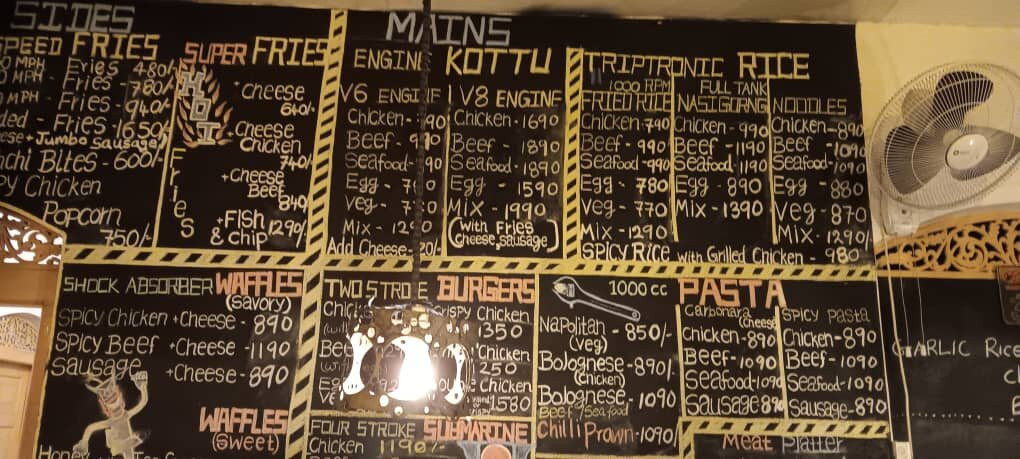 SIDES
SPEED FRIES
MPH - Fries 480/-
MPH - Fries - 780/-
MPH - Fries - 940/-
Fries - 1650/-
+ Jumbo sausage)
Bites - 600/-
Chicken
Popcorn
750/-
SUPER FRIES
HOT
Fries
+ Cheese
640/-
+ Cheese
Chicken
740/-
+ Cheese
Beef
840/-
+ Fish
& Chip 1290/-
MAINS
ENGINE KOTTU
V6 ENGINE
Chicken
Beef
Seafood
Egg
Veg
Mix
Add Cheese
V8 ENGINE
Chicken - 1690
Beef - 1890
Seafood - 1890
Egg - 1590
Mix - 1990
(with Fries
Cheese, sausage)
TRIPTRONIC RICE
1000 RPM
FRIED RICE
Chicken 790
Beef - 990
Seafood - 990
Egg - 780
Veg - 770
Mix - 1290
FULL TANK
NASI GORANG
Chicken - 990
Beef - 1190
Seafood - 1190
Egg - 890
Mix - 1390
NOODLES
Chicken - 890
Beef - 1090
Seafood - 1090
Egg - 880
Veg - 870
Mix - 1290/-
SPICY RICE with Grilled Chicken - 980
SHOCK ABSORBER WAFFLES
(Savory)
SPICY Chicken + Cheese - 890
SPICY Beef + Cheese - 1190
Sausage + Cheese - 890
WAFFLES
(Sweet)
TWO STROKE BURGERS
Crispy Chicken
1350
Chicken
250
Chicken
1580
FOUR STROKE SUBMARINE
Chicken 1190/-
1000 CC PASTA
Napolitan - 850/-
(veg)
Bolognese - 890/-
(Chicken)
Bolognese - 1090
Beef / Seafood
Chilli Prawn - 1090/-
Carbonara (Cheese)
Chicken - 890
Beef - 1090
Seafood - 1090
Sausage 890
Spicy Pasta
Chicken - 890
Beef - 1090
Seafood - 1090
Sausage - 890
Meat Platter
GARLIC Rice